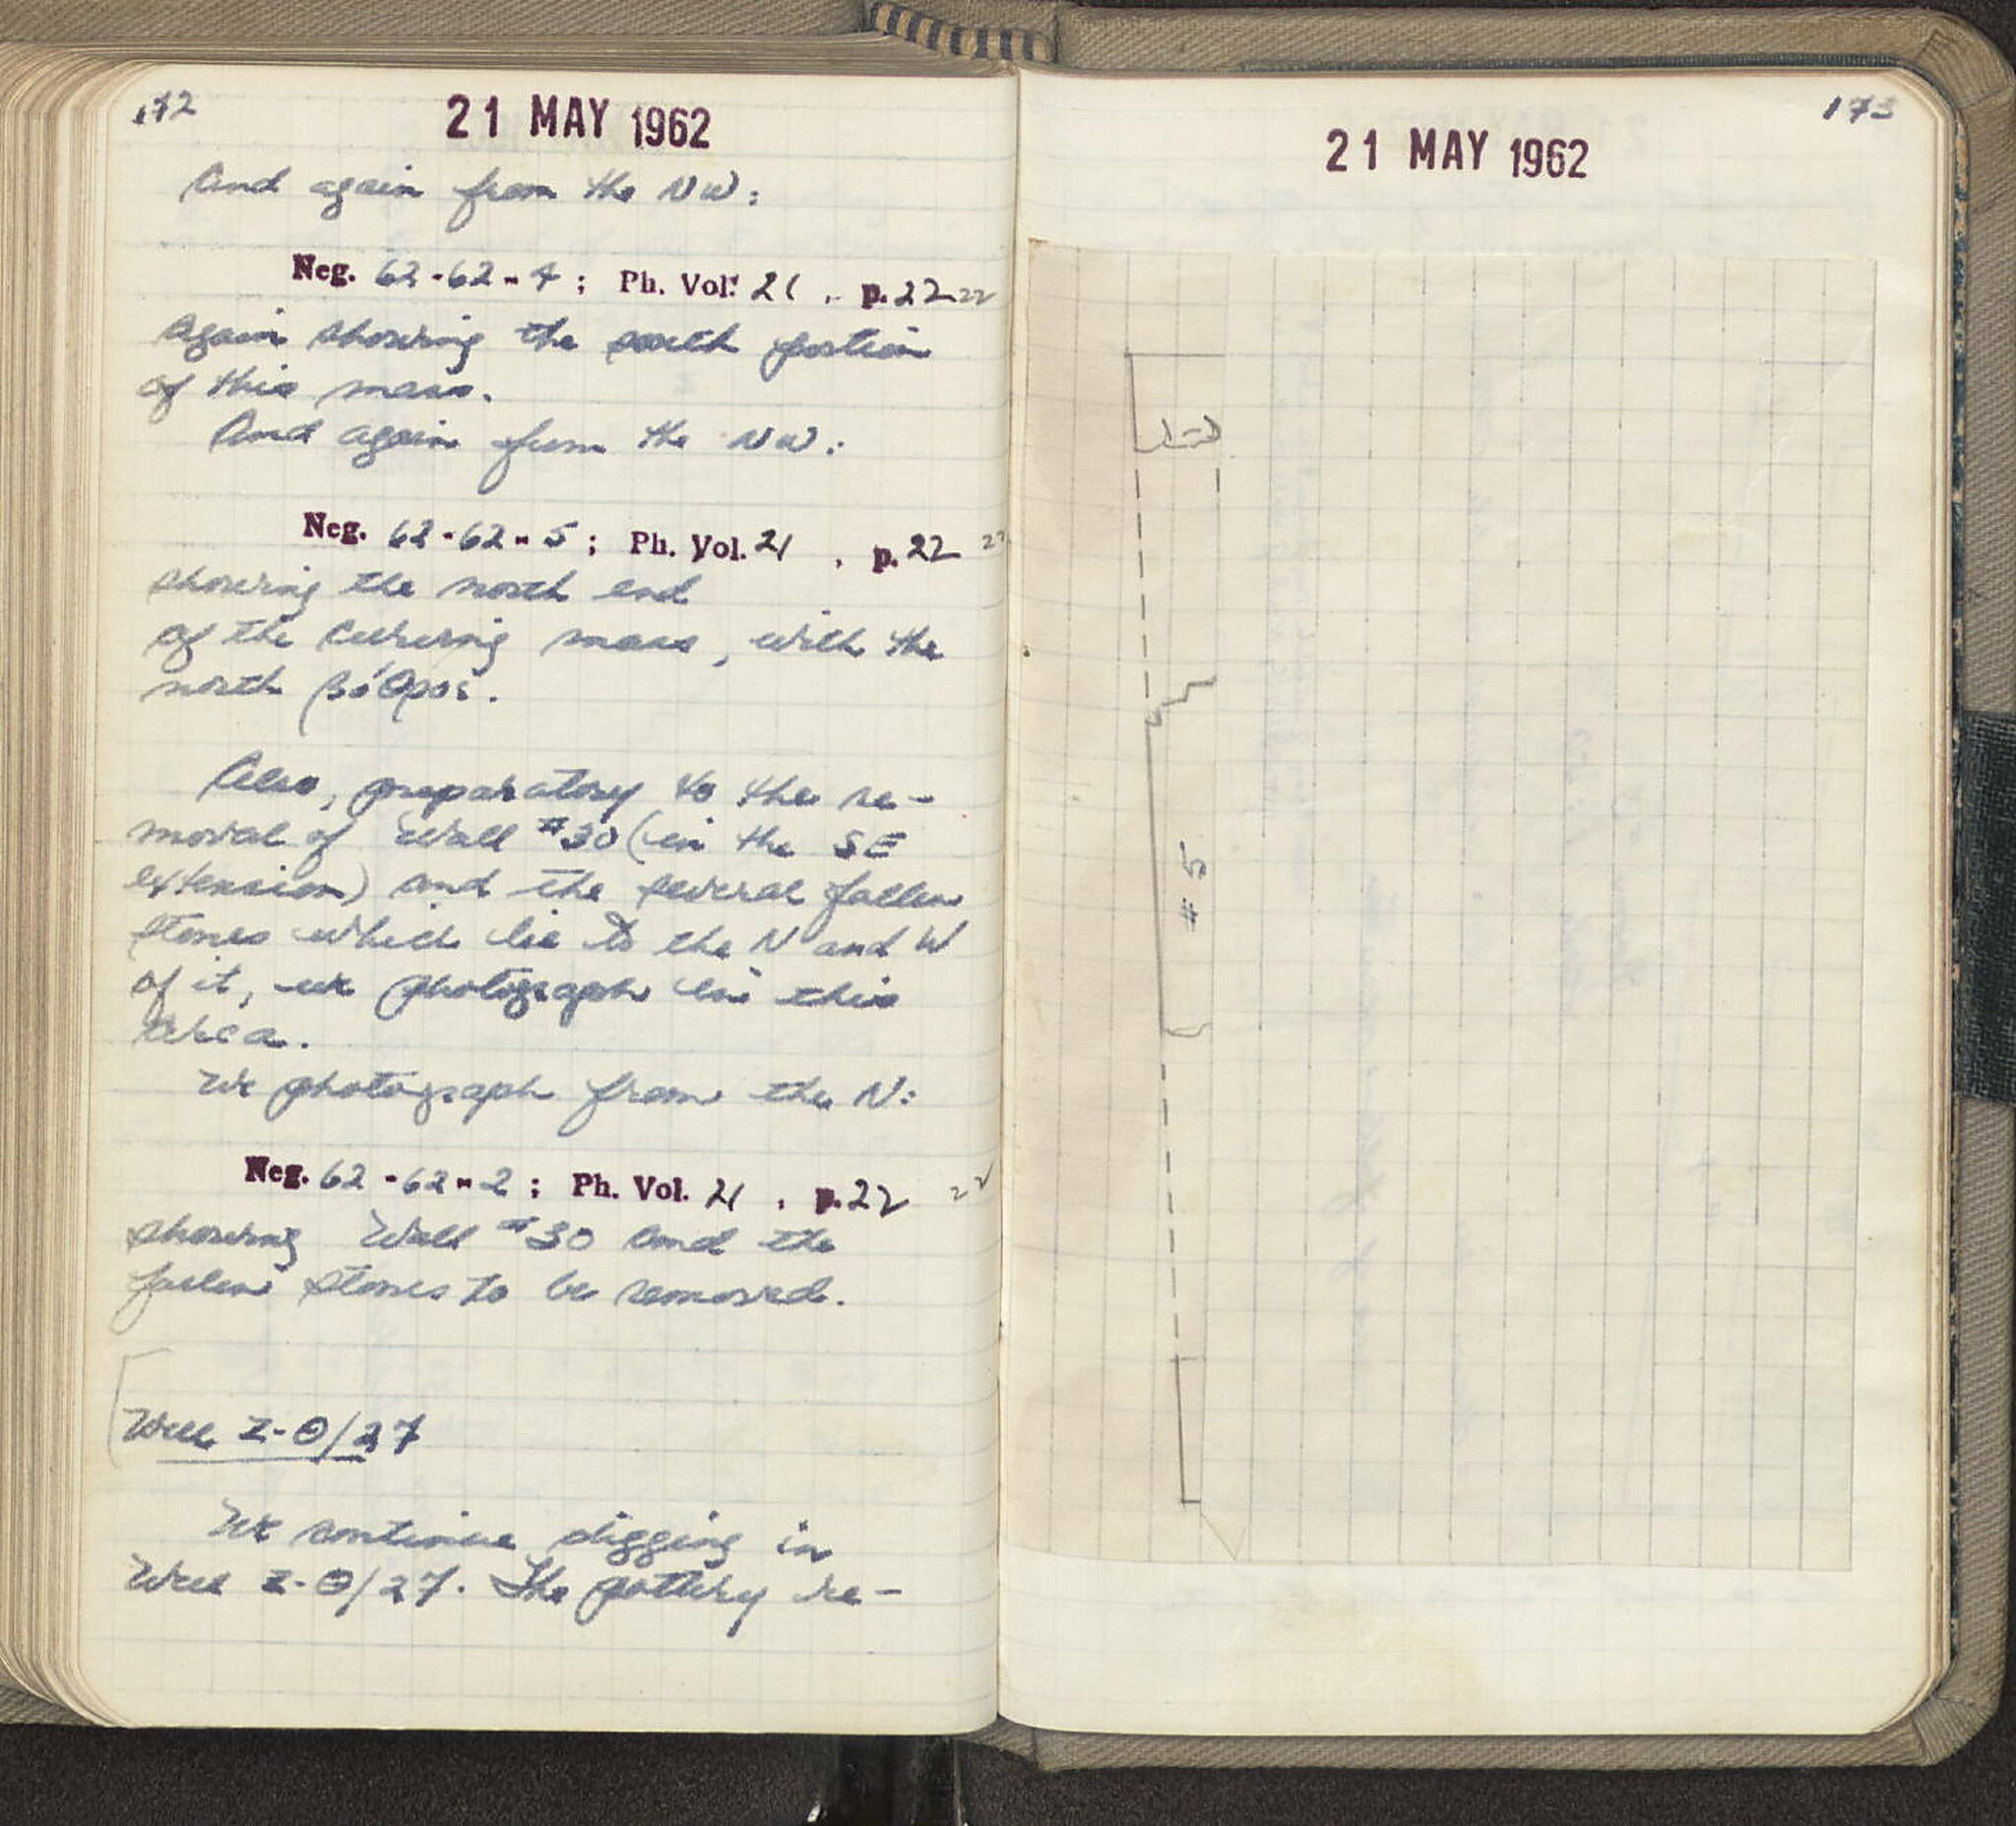 172
21 MAY 1962
And again from the NW:
Neg. 62-62-4; Ph. Vol. 21, p. 22 22
Again showing the south portion
of this mass.
And again from the NW:
Neg. 62-62-5; Ph. Vol. 21, p. 22 22
showing the north end
of the curving mass, with the
north βόθρος.
Also, preparatory to the re-
moval of Wall #30 (in the SE
extension) and the several fallen
stones which lie to the N and W
of it, we photograph in this
area.
We photograph from the N:
Neg. 62-62-2; Ph. Vol. 21, p. 22 22
showing Wall #30 and the
fallen stones to be removed.
Well Z-Θ/27
We continue digging in
Well Z-Θ/27. The pottery re-
173
21 MAY 1962
#5